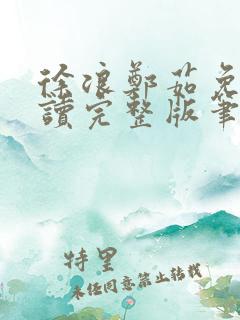 徐浪鄭茹免
讀完整版筆
特里
未经同意禁止转载